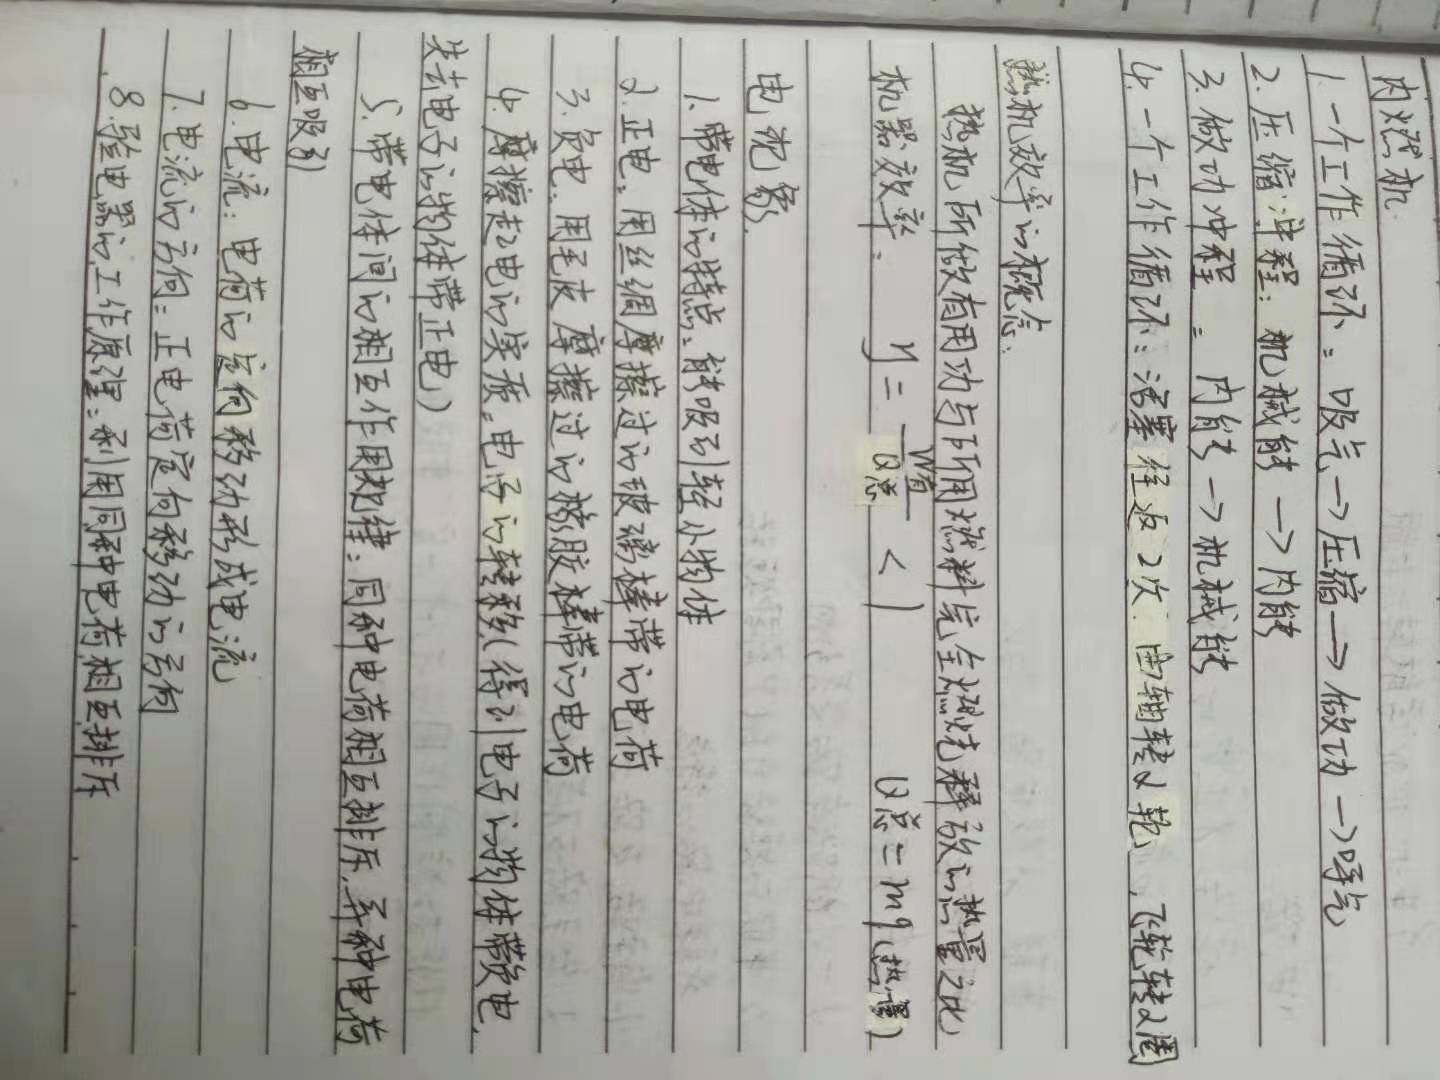 内燃机.
1. 一个工作循环: 吸气→压缩→做功→呼气
2. 压缩冲程: 机械能→内能
3. 做功冲程: 内能→机械能
4. 一个工作循环: 活塞往返2次. 曲轴转2轮, 飞轮转2圈
热机效率的概念:
热机所做有用功与所用燃料完全燃烧释放的热量之比
机器效率: η = W有/Q总 < 1 Q总=mq(热量)
电现象.
1. 带电体的特点: 能吸引轻小物体
2. 正电: 用丝绸摩擦过的玻璃棒带的电荷
3. 负电: 用毛皮摩擦过的橡胶棒带的电荷
4. 摩擦起电的实质: 电子的转移(得到电子的物体带负电,
失去电子的物体带正电)
5. 带电体间的相互作用规律: 同种电荷相互排斥, 异种电荷
相互吸引
6. 电流: 电荷的定向移动形成电流
7. 电流的方向: 正电荷定向移动的方向
8. 验电器的工作原理: 利用同种电荷相互排斥